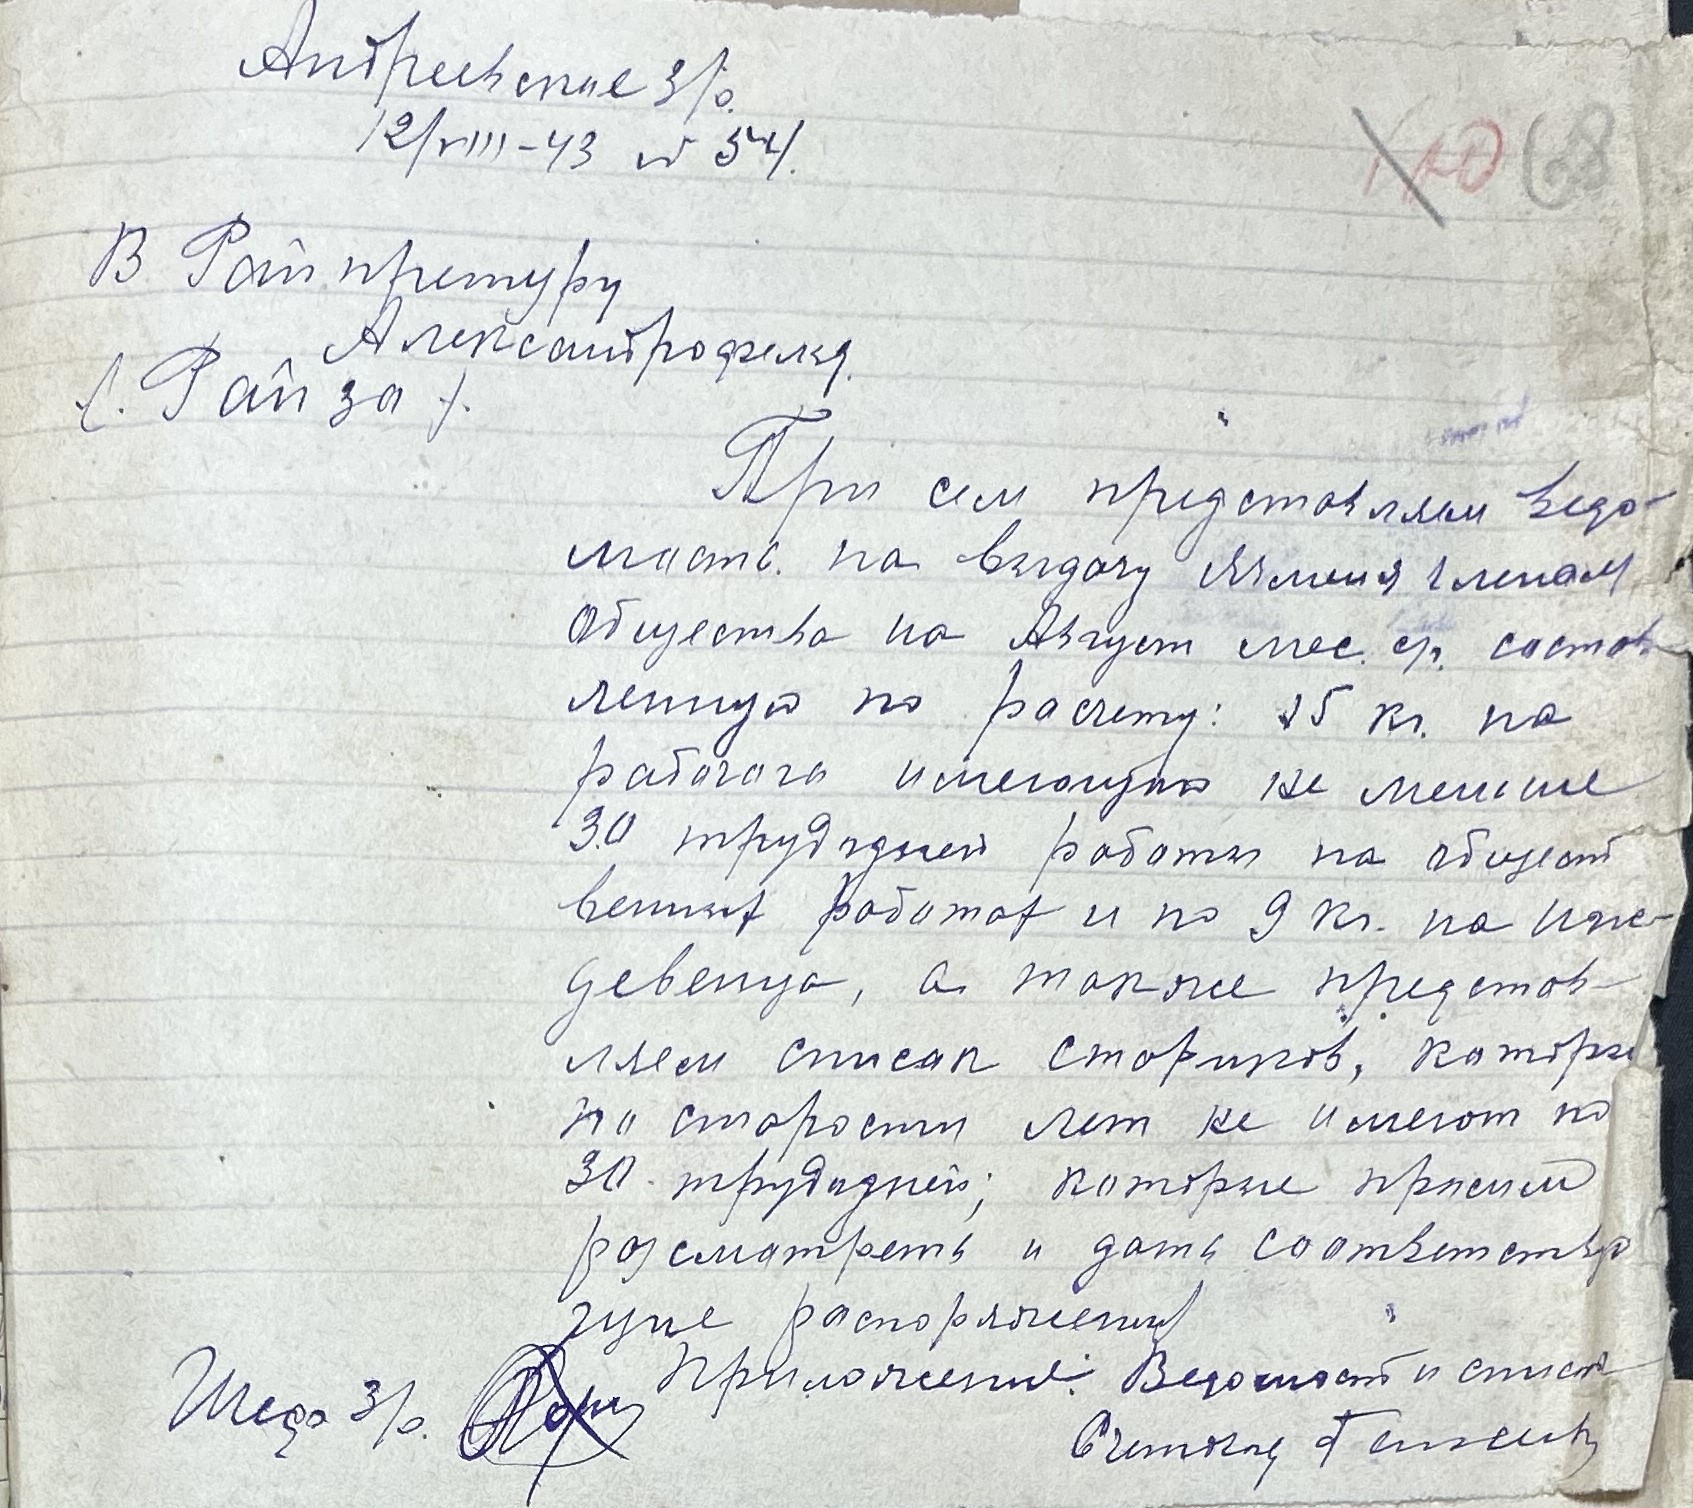 Андреевское з/о.
12/VIII-43 № 54.
110 68
В Рай претуру
Александрофельд.
(. Рай за ).
При сем представляем ведо-
мость на выдачу ячменя членам
общества на Август мес. с/г. состав-
ленную по расчету: 15 кг. на
рабочего имеющего не меньше
30 трудодней работы на общест
венных работах и по 9 кг. на иж-
девенца, а также представ-
ляем список стариков, которы
по старости лет не имеют по
30 трудодней; которые просим
розсмотреть и дать соответству
ющие распоряжения
Приложение: Ведомость и список
Шеф з/о.
Счетовод